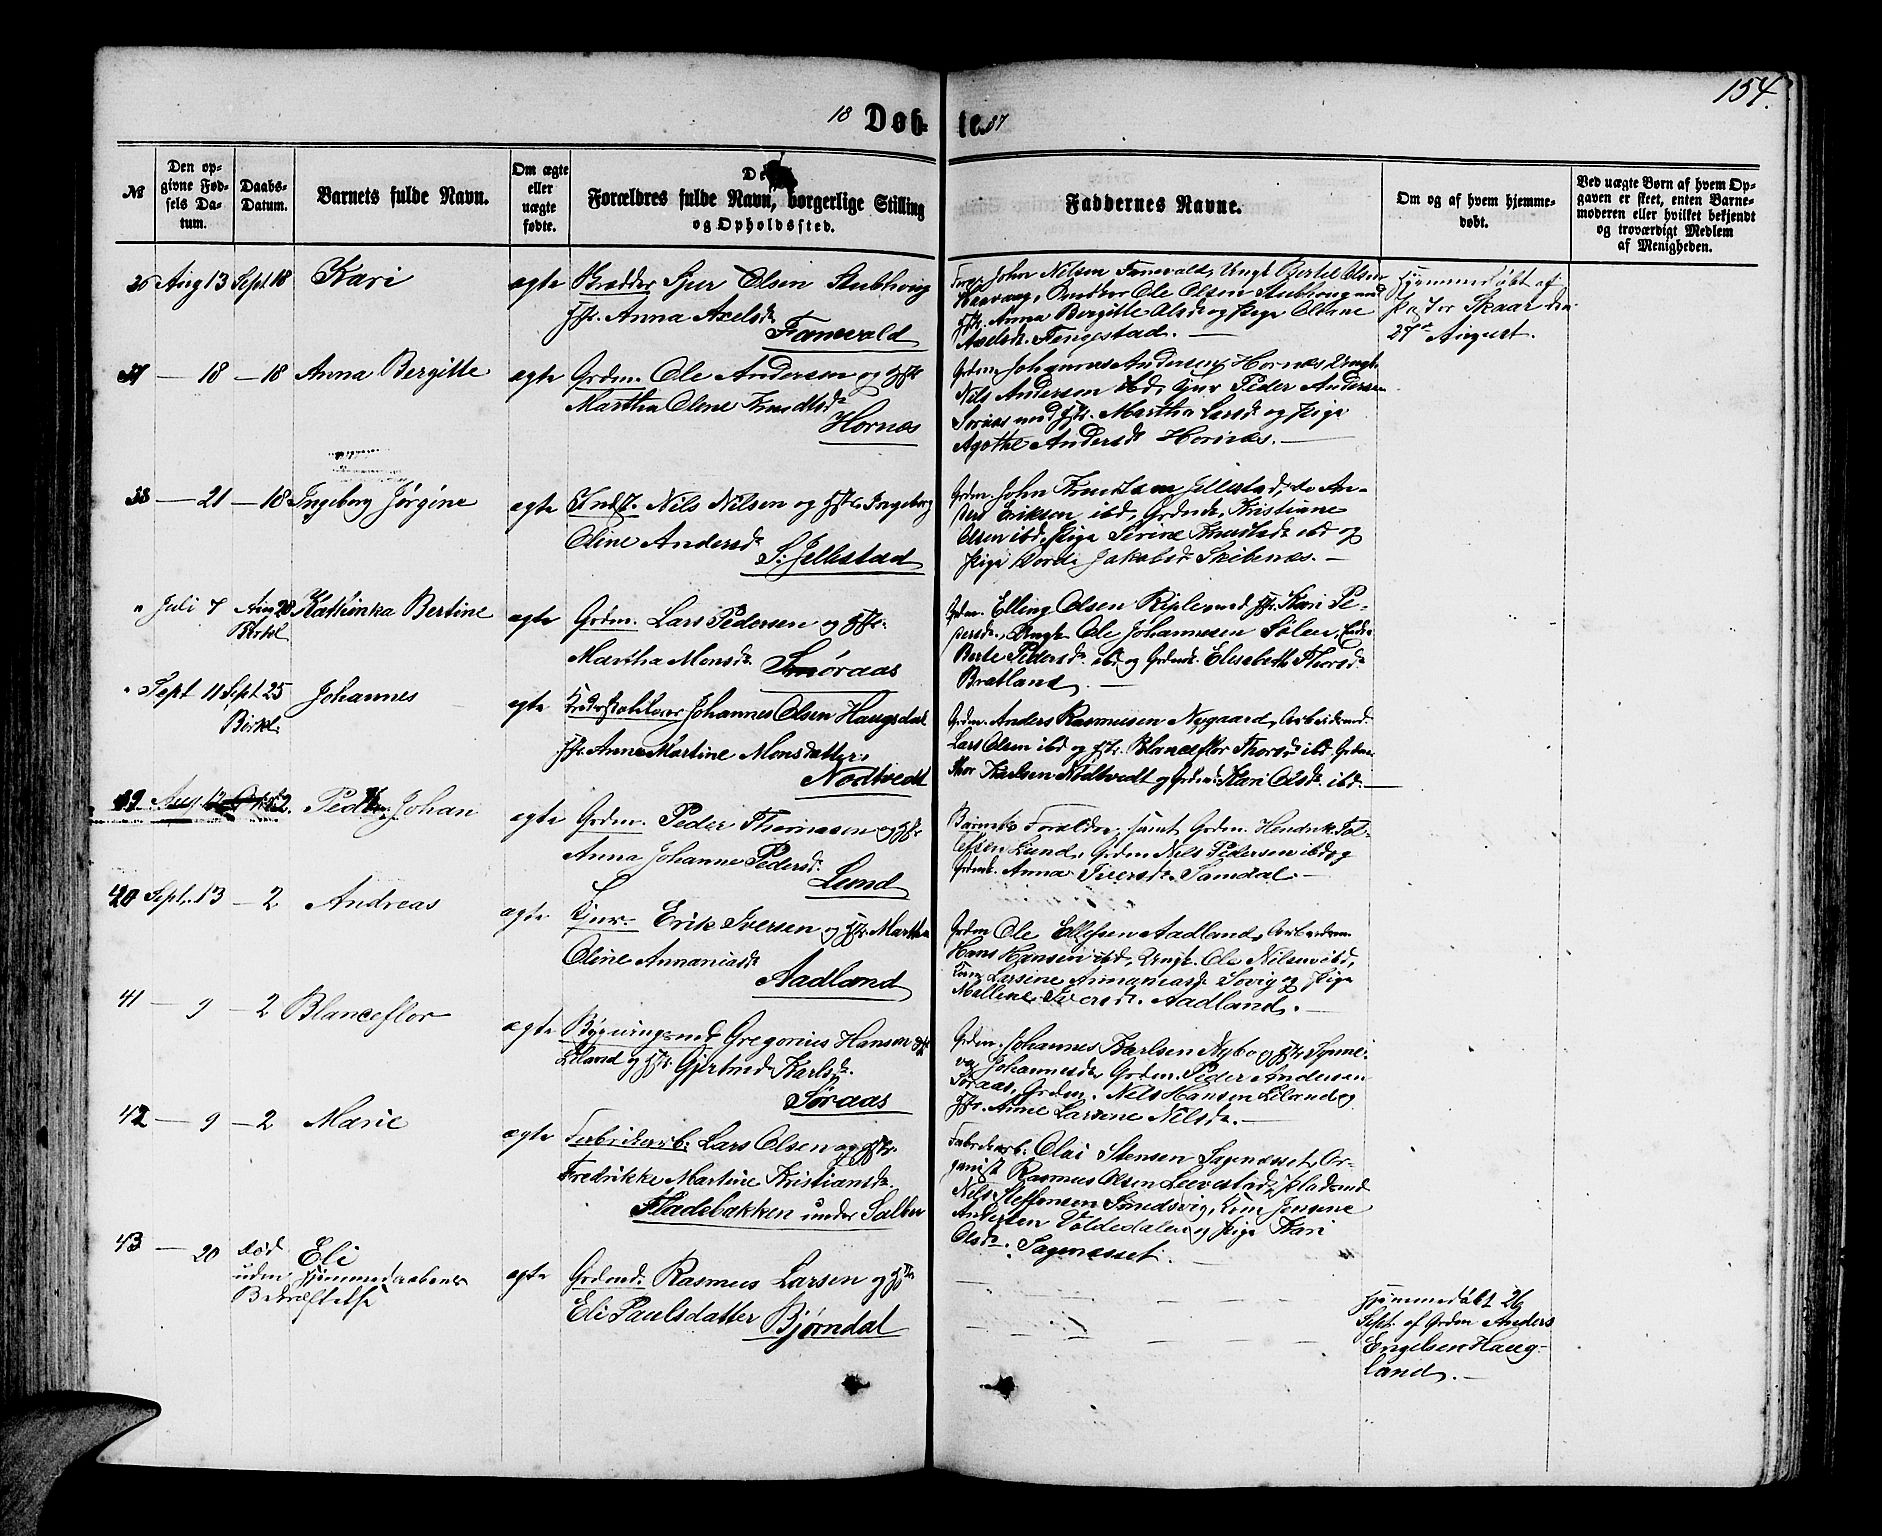 154.
18 Døb-te. 87
№
Den opgivne Fødsels Datum.
Daabs-Datum.
Barnets fulde Navn.
Om ægte eller uægte fødte.
De
Forældres fulde Navn, borgerlige Stilling
og Opholdssted.
Faddernes Navne.
Om og af hvem hjemmedøbt.
Ved uægte Børn af hvem Opgaven er skeet, enten Barnemoderen eller hvilket bekjendt og troværdigt Medlem af Menigheden.
36 Aug 13 Sept 18 Kari ægte Brødder Sjur Olsen Stubhoug
Hst. Anna Axelsd.
Fanevald
John Nilsen Fanevald, Ungk. Bertel Olsen
Ole Olsen Stubhoug med
Hst. Anna Bergitte Olsd og Pige Oliane
Axelsd. Fengestad. —
Hjemmedøbt af
Pastor Skaar den
27de August.
37 — 18 — 18 Anna Bergitte ægte Grdm. Ole Andersen og Hst
Martha Oline Knudtsd.
Hornæs
Grdm. Johannes Andersen Hornæs Ungk.
Nils Andersen ibd, Gjur Peder Andersen
Søraas med Hst. Martha Larsd og Pige
Agathe Andersd Hornæs. —
38 — 21 — 18 Ingeborg Jørgine ægte Indst. Nils Nilsen og Hst. Ingeborg
Oline Andersd.
S. Jellestad
Grdm. John Knutsen Jellestad, do An-
ders Eriksen ibd, Grdmk. Kristiane
Olsen ibd, Pige Serine Knutsd. ibd og
Pige Dorde Jakobsd. Skibenæs. —
" Juli 7 Aug 28 Kathinka Bertine ægte Grdm. Lars Pedersen og Hst.
Birkel
Martha Monsd. Smøraas
Grdm. Elling Olsen Riple med Hst. Kari Pe-
dersd., Ungk. Ole Johannesen Sølen,
Berte Pedersd. ibd og Grdmk. Elisabeth Thorsd.
Bratland. —
" Sept 11 Sept 25 Johannes ægte Johannes Olsen Haugsdal
Birkel.
Hst. Anne Martine Monsdatter,
Nødtvedt
Grdm. Anders Rasmusen Nygaard, Arbeidsmd.
Lars Olsen ibd og Hst. Blanceflor Thorsd ibd, Grdm.
Thor Karlsen Nødtvedt og Grdmk. Kari Olsd. ibd. —
39 Aug 2. Peder Johan ægte Grdm. Peder Thomasen og Hst
Anna Johanne Pedersd.
Lund
Barnets Forældre, samt Grdm. Hendrik Tol-
lefsen Lund, Grdm Nils Pedersen ibd og
Grdmk. Anna Iversd. Samdal. —
40 Sept. 13 — 2 Andreas ægte Gjur. Erik Iversen og Hst. Martha
Oline Annaniasd.
Aadland
Grdm Ole Ellefsen Aadland, Arbeidsm.
Hans Hansen ibd, Ungk. Ole Nilsen ibd,
Larsine Annaniasd. Søvig og Pige
Mallene Iversd. Aadland. —
41 — 9 — 2 Blanceflor ægte Bygningsmd Gregorius Hansen
Liland og Hst. Gjertrud Karlsd.
Søraas
Grdm. Johannes Karlsen Nybø og Hst Synne-
va Johannesd., Grdm. Peder Andersen
Søraas, Grdm. Nils Hansen Liland og
Hst. Anne Larsine Nilsd. —
42 — 9 — 2 Marie ægte Fabrikarb. Lars Olsen og Hst.
Fredrikke Martine Kristiansd.
Fladebakken under Salbu
Fabrikarb. Olai Stensen Sagenesset, Or-
ganist Rasmus Olsen Levestad, Pladsmd.
Nils Steffensen Smedsvig, Kone Jensine
Andersen Voldedalen og Pige Kari
Olsd. Sagenesset. —
43 — 20 død Eli
uden Hjemmedaabens
Bekræftelse
ægte Grdmd. Rasmus Larsen og Hst.
Eli Paulsdatter Bjørndal
Hjemmedøbt 26
Sept. af Grdm Anders
Engelsen Haug-
land. —